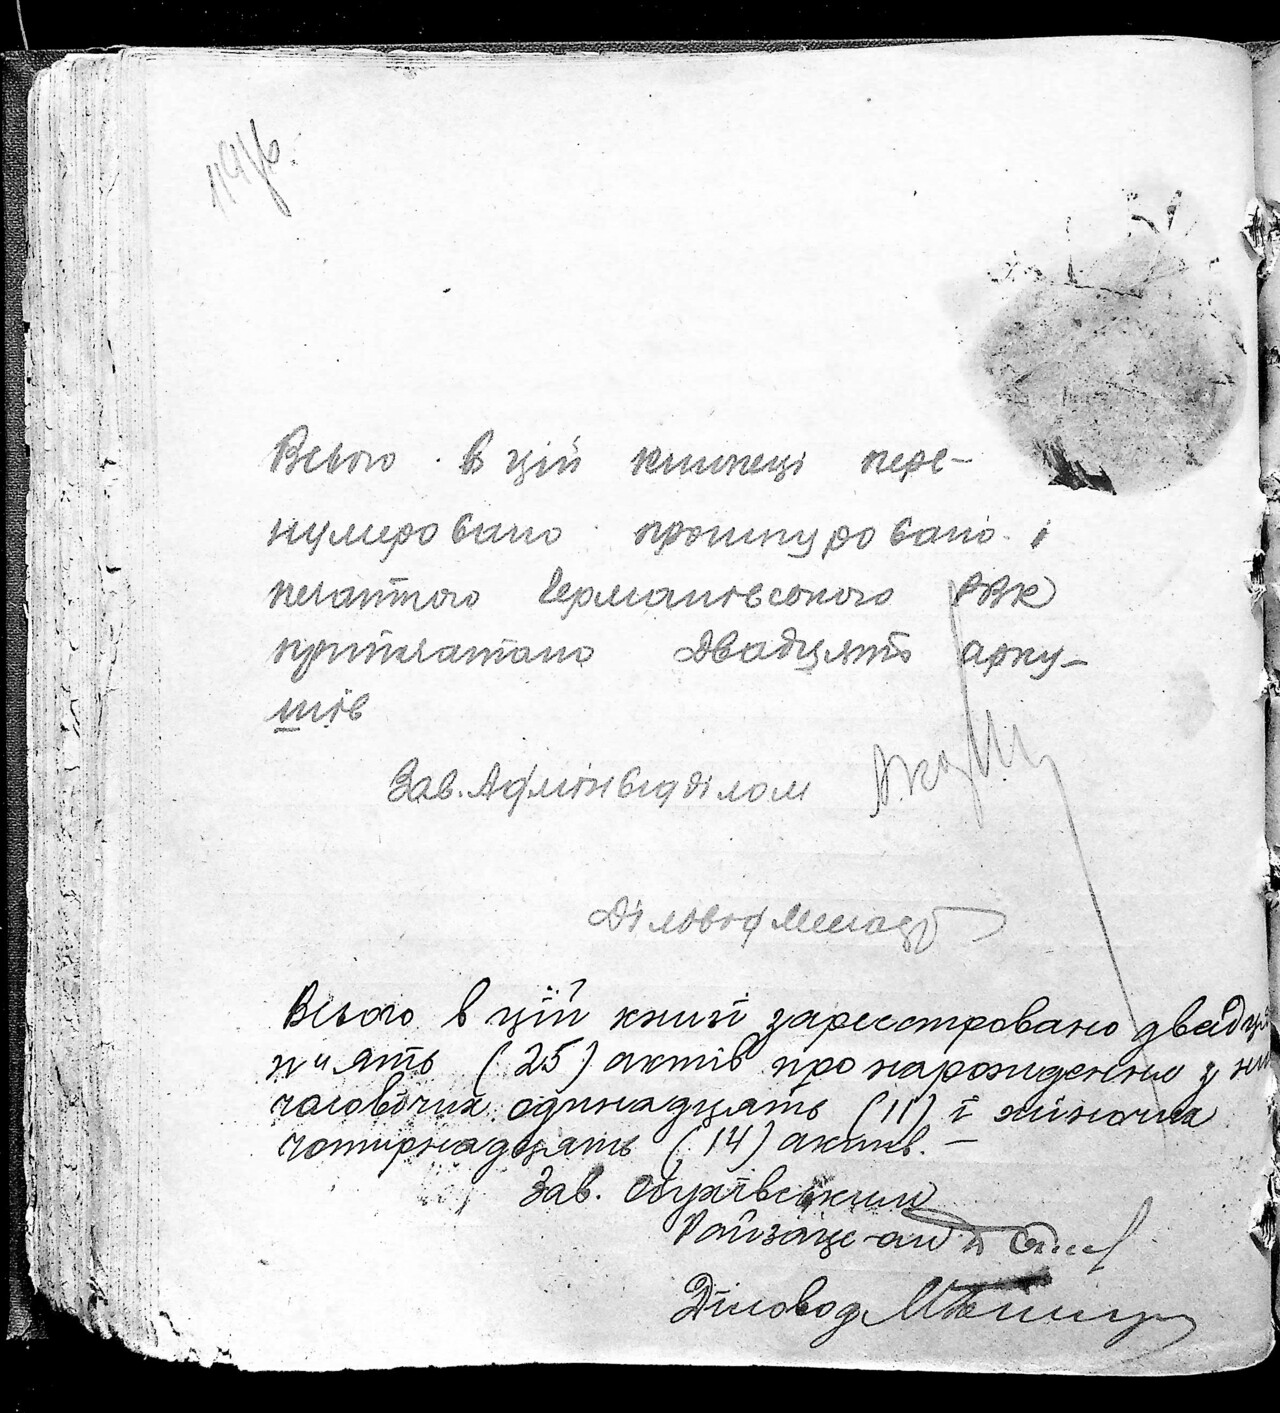 Всього в цій книжеці пере-
нумеровано прошнуровано і
печаткою Германівського РВК
припечатано двадцять арку-
шів
Зав. Адмінвідділом
Діловод
Всього в цій книзі зареєстровано двадц
п"ять (25) актів про народження у них
чоловічих одинадцять (11) і жіночих
чотирнадцять (14) актів. —
Зав. Обухівським
Райзагс-ом
Діловод